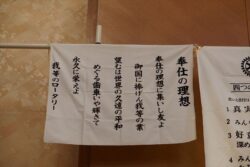 奉仕の理想
奉仕の理想に集いし友よ
御国に捧げん我等の業
望むは世界の久遠の平和
めぐる歯車いや輝きて
永久に栄えよ
我等のロータリー
四つ